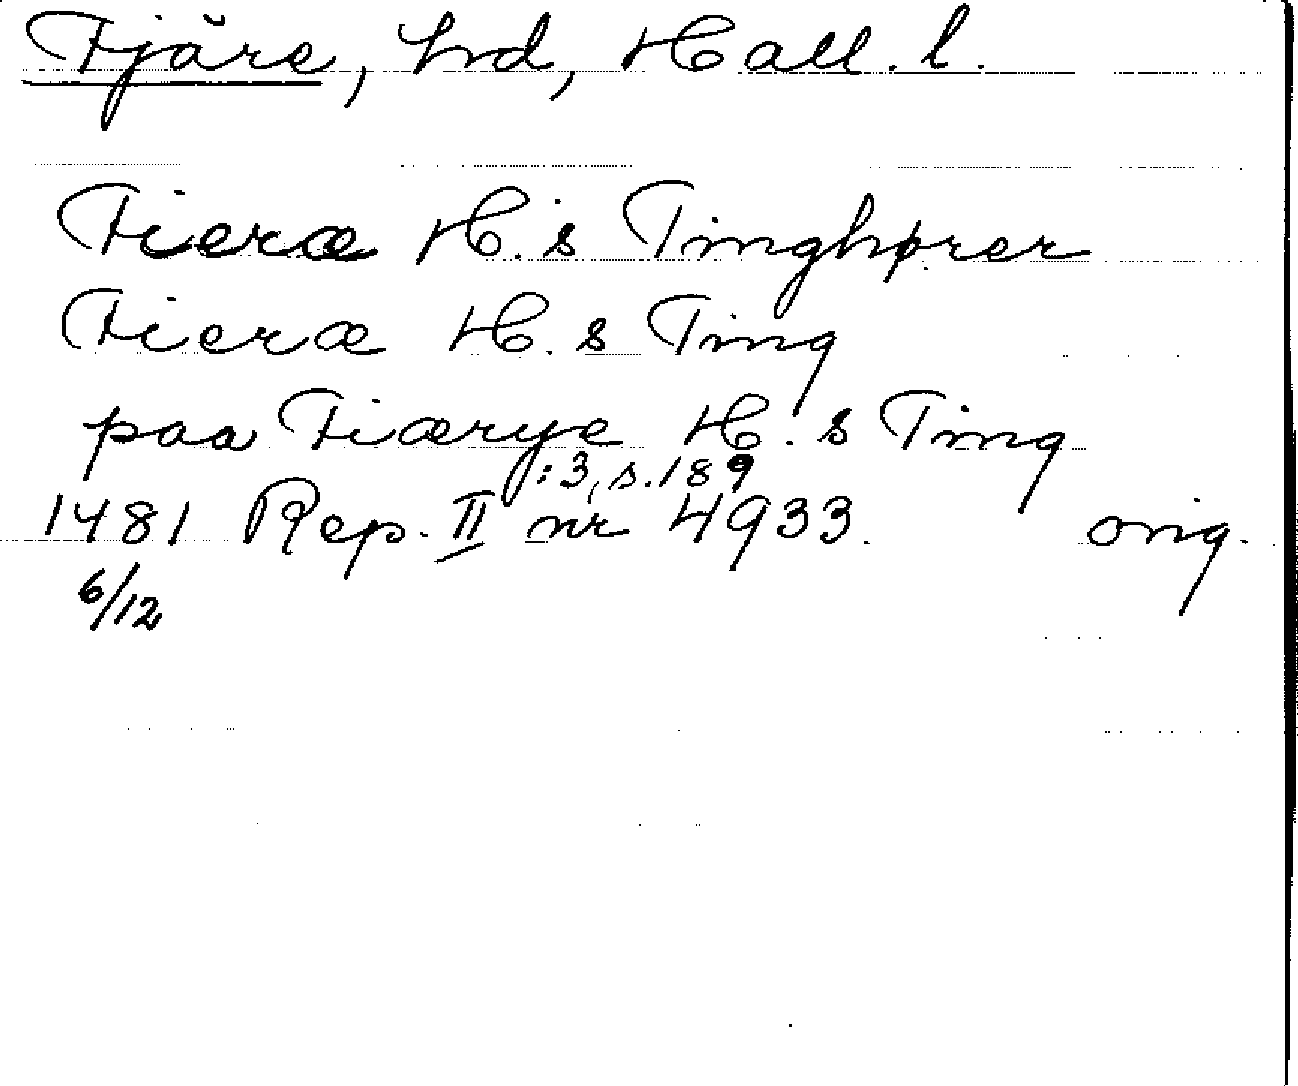 Fjäre, hd, Hall. l.
Fieræ H.'s Tinghører
Fieræ H.s Ting
paa Fiærye H.s Ting
:3, s.189
1481 Rep. II nr 4933. orig.
6/12